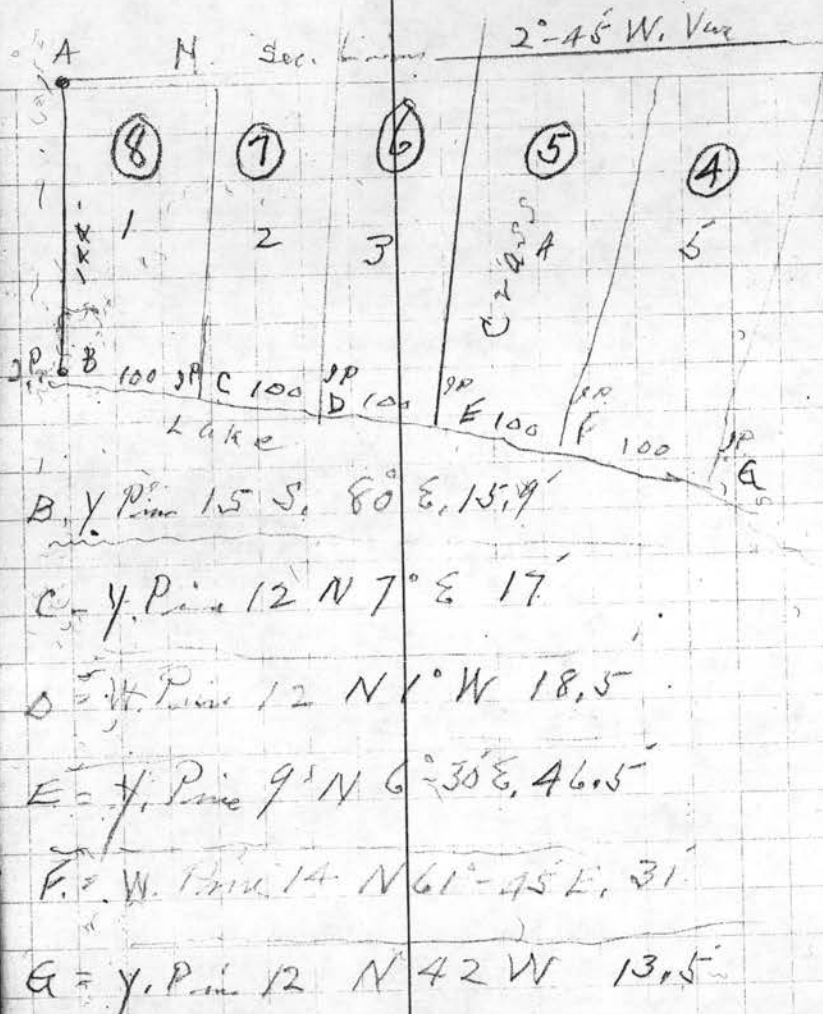 A N Sec. 2°-45' W. Var
8 7 6 5 4
1 2 3 A 5
IP B 100 IP C 100 IP D 100 IP E 100 IP F 100 IP G
Lake
B. Y Pine 15 S. 80° E, 15.9'
C - Y. Pine 12 N 7° E 17'
D = W. Pine 12 N 1° W 18.5
E = Y. Pine 9" N 6°-30' E. 46.5'
F. = W. Pine 14 N 61°-45' E, 31'
G = Y. Pine 12 N 42 W 13.5'